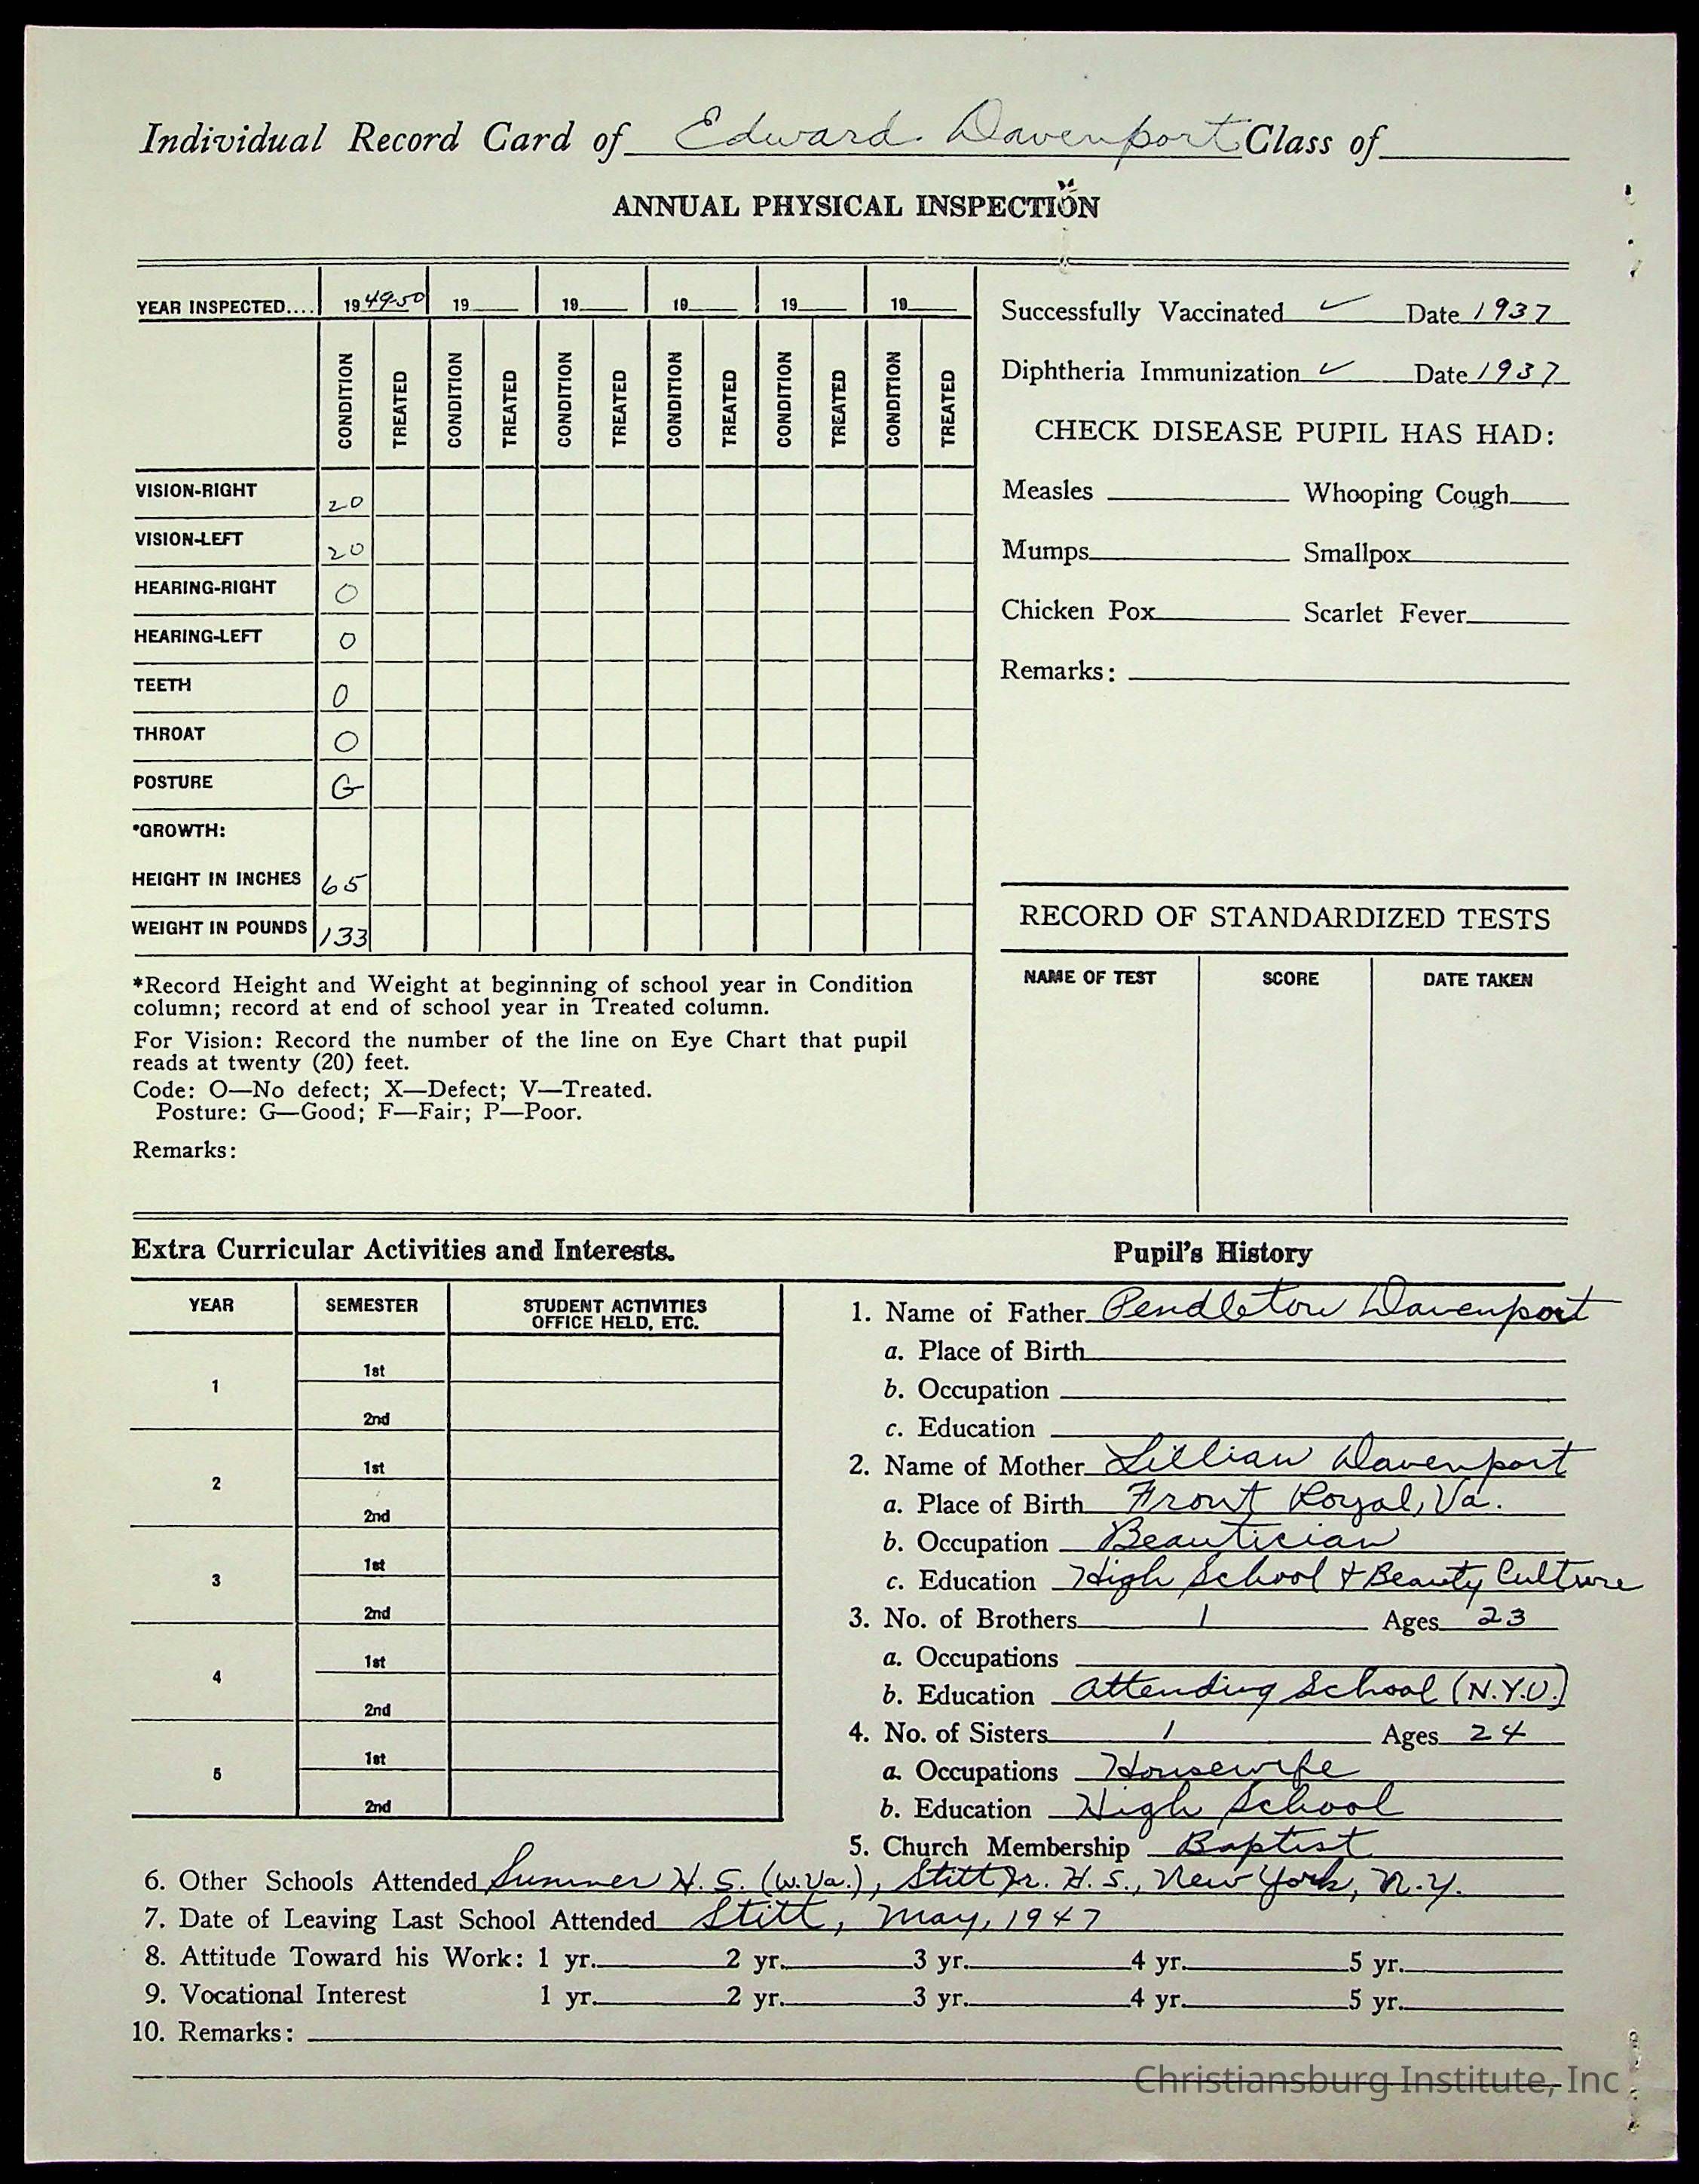 Individual Record Card of Edward Davenport Class of
ANNUAL PHYSICAL INSPECTION
YEAR INSPECTED.... 1949-50 19 19 19 19 19
CONDITION TREATED CONDITION TREATED CONDITION TREATED CONDITION TREATED CONDITION TREATED CONDITION TREATED
VISION-RIGHT 20
VISION-LEFT 20
HEARING-RIGHT O
HEARING-LEFT O
TEETH O
THROAT O
POSTURE G
*GROWTH:
HEIGHT IN INCHES 65
WEIGHT IN POUNDS 133
*Record Height and Weight at beginning of school year in Condition
column; record at end of school year in Treated column.
For Vision: Record the number of the line on Eye Chart that pupil
reads at twenty (20) feet.
Code: O—No defect; X—Defect; V—Treated.
Posture: G—Good; F—Fair; P—Poor.
Remarks:
Successfully Vaccinated ✓ Date 1937
Diphtheria Immunization ✓ Date 1937
CHECK DISEASE PUPIL HAS HAD:
Measles Whooping Cough
Mumps Smallpox
Chicken Pox Scarlet Fever
Remarks:
RECORD OF STANDARDIZED TESTS
NAME OF TEST SCORE DATE TAKEN
Extra Curricular Activities and Interests.
YEAR SEMESTER STUDENT ACTIVITIES
OFFICE HELD, ETC.
1 1st
2nd
2 1st
2nd
3 1st
2nd
4 1st
2nd
5 1st
2nd
Pupil's History
1. Name of Father Pendleton Davenport
a. Place of Birth
b. Occupation
c. Education
2. Name of Mother Lillian Davenport
a. Place of Birth Front Royal, Va.
b. Occupation Beautician
c. Education High School & Beauty Culture
3. No. of Brothers 1 Ages 23
a. Occupations
b. Education Attending School (N.Y.U.)
4. No. of Sisters 1 Ages 24
a. Occupations Housewife
b. Education High School
5. Church Membership Baptist
6. Other Schools Attended Sumner H. S. (W.Va.), Stitt Jr. H. S., New York, N.Y.
7. Date of Leaving Last School Attended Stitt, May, 1947
8. Attitude Toward his Work: 1 yr. 2 yr. 3 yr. 4 yr. 5 yr.
9. Vocational Interest 1 yr. 2 yr. 3 yr. 4 yr. 5 yr.
10. Remarks:
Christiansburg Institute, Inc